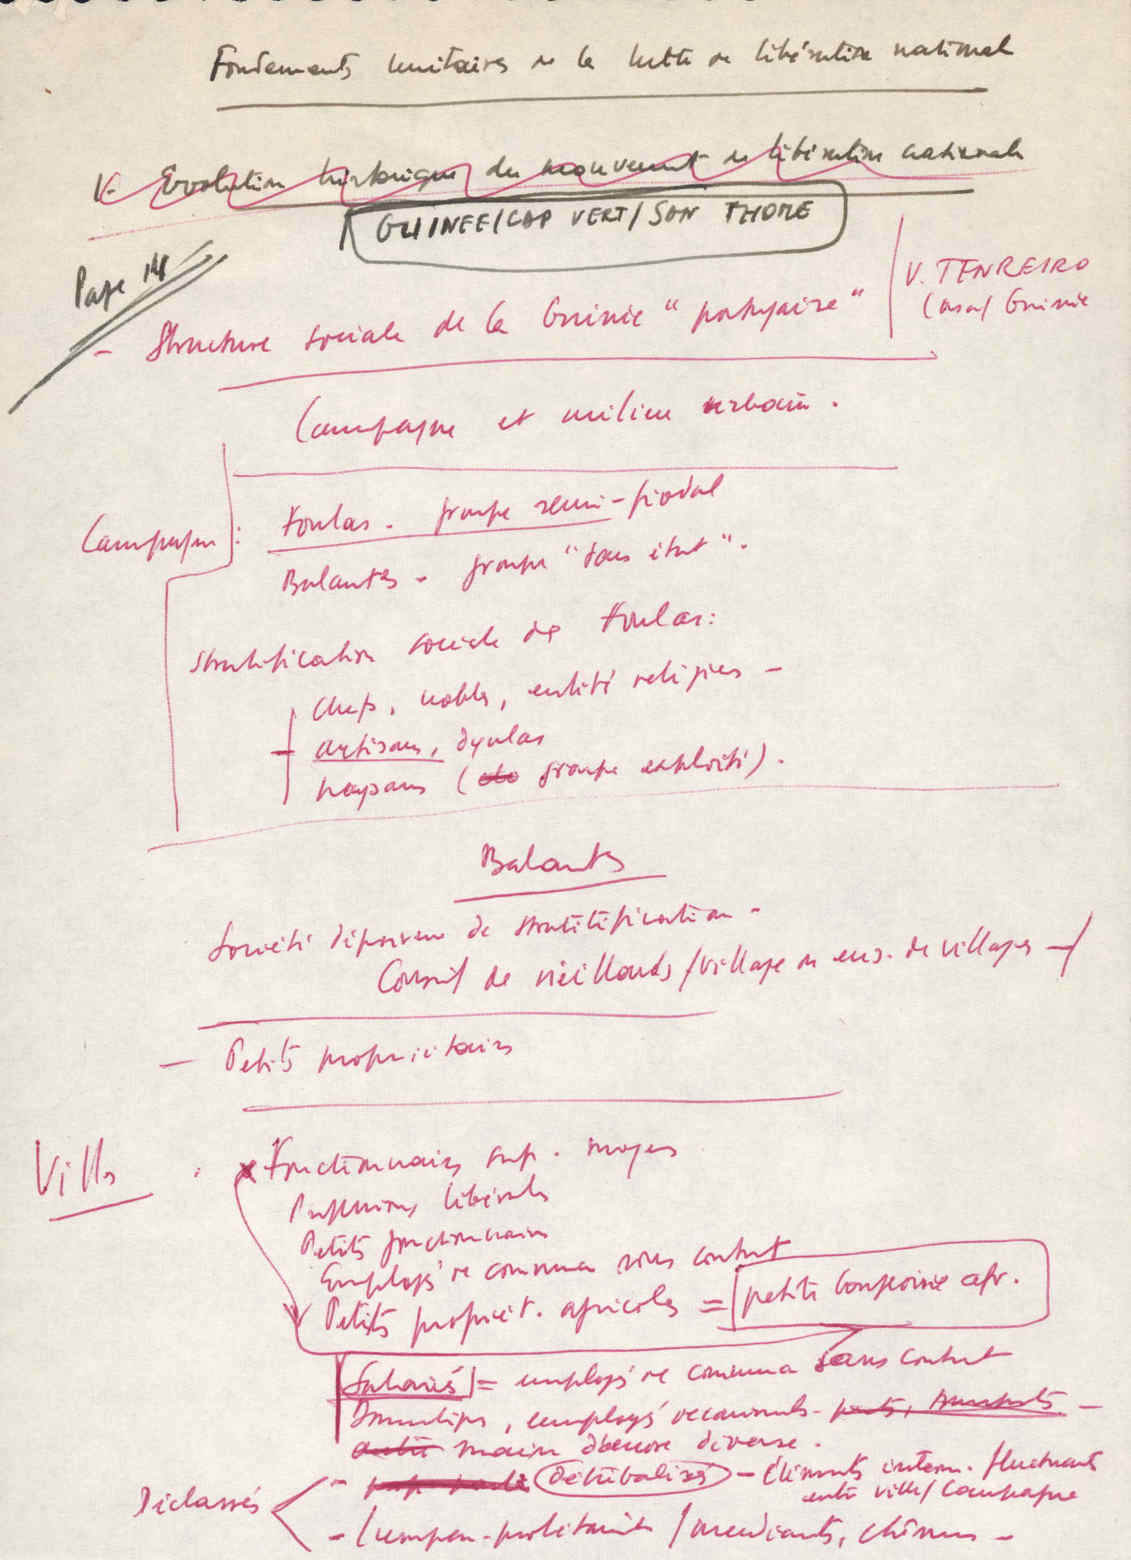 Fondements unitaires de la lutte de libération national
1- Evolution historique du mouvement de libération nationale
GUINEE/CAP VERT/SAN THOME
Page 14
V. TENREIRO
Guinée
- Structure sociale de la Guinée "portugaise"
Campagne et milieu urbain.
Campagne : Foulas - groupe semi-féodal
Balantes - groupe "sans état".
Stratification sociale des Foulas:
Chefs, nobles, entité religieuse -
artisans, dyulas
paysans (groupe exploité).
Balantes
Société dépourvue de stratification -
Conseil de vieillards/village ou ens. de villages -
- Petits propriétaires
Villes . Fonctionnaires sup. moyens
Professions libérales
Petits fonctionnaires
Employés de commerce sous contrat
Petits propriét. agricoles = petite bourgeoisie afr.
Salariés = employés de commerce sans contrat
Domestiques, employés - ports, transports -
main d'œuvre diverse.
Déclassés
- détribalisés - Éléments interm. fluctuants
entre ville/campagne
- Lumpen-prolétariat / mendiants, chômeurs -